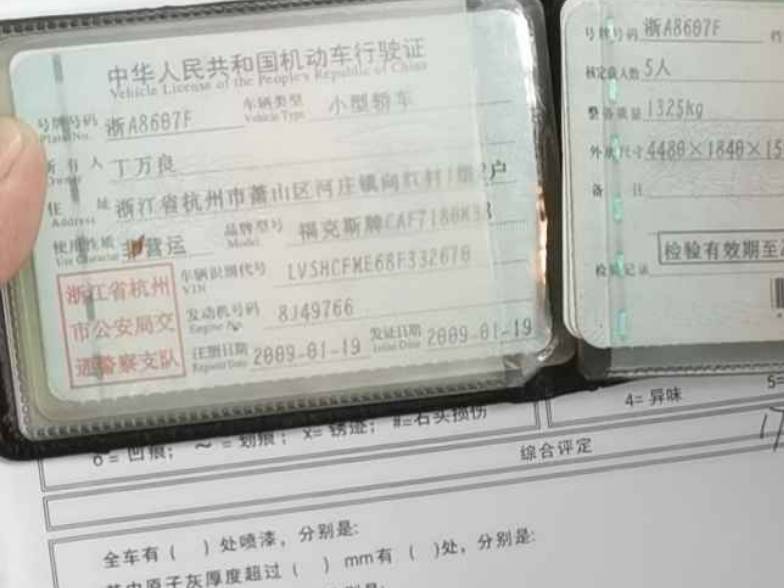 中华人民共和国机动车行驶证
Vehicle License of the People's Republic of China
号牌号码 浙A8607F 车辆类型 小型轿车
Plate No. Vehicle Type
所有人 丁万良
Owner
住址 浙江省杭州市萧山区河庄镇向红村 户
Address
使用性质 非营运 品牌型号 福克斯牌CAF7180M
Use Character Model
浙江省杭州
市公安局交
通警察支队
车辆识别代号 LVSHCFME68F332670
VIN
发动机号码 8J49766
Engine No.
注册日期 2009-01-19 发证日期 2009-01-19
Register Date Issue Date
号牌号码 浙A8607F 档
核定载人数 5人
整备质量 1325kg
外廓尺寸 4480×1840×15
备 注
检验有效期至
检验记录
6= 凹痕; ~ = 划痕; x= 锈迹; #=石头损伤
4= 异味 5=
综合评定
全车有( )处喷漆,分别是:
其中原子灰厚度超过( ) mm有( )处,分别是: